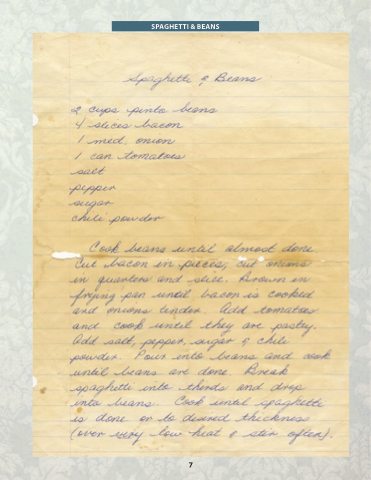 SPAGHETTI & BEANS
Spaghetti & Beans
2 cups pinto beans
4 slices bacon
1 med. onion
1 can tomatoes
salt
pepper
sugar
chili powder
Cook beans until almost done.
Cut bacon in pieces, cut onions
in quarters and slice. Brown in
frying pan until bacon is cooked
and onions tender. Add tomatoes
and cook until they are pastey.
Add salt, pepper, sugar & chili
powder. Pour into beans and cook
until beans are done. Break
spaghetti into thirds and drop
into beans. Cook until spaghetti
is done or to desired thickness
(over very low heat & stir often).
7